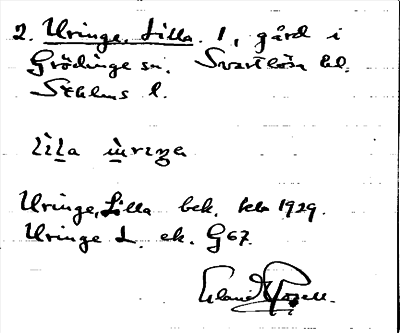 2. Uringe, Lilla. 1, gård i
Grödinge sn. Svartlösa hd.
Sthlms l.
lila ùringe
Uringe, Lilla bek. kbr 1929.
Uringe L. ek. G67.